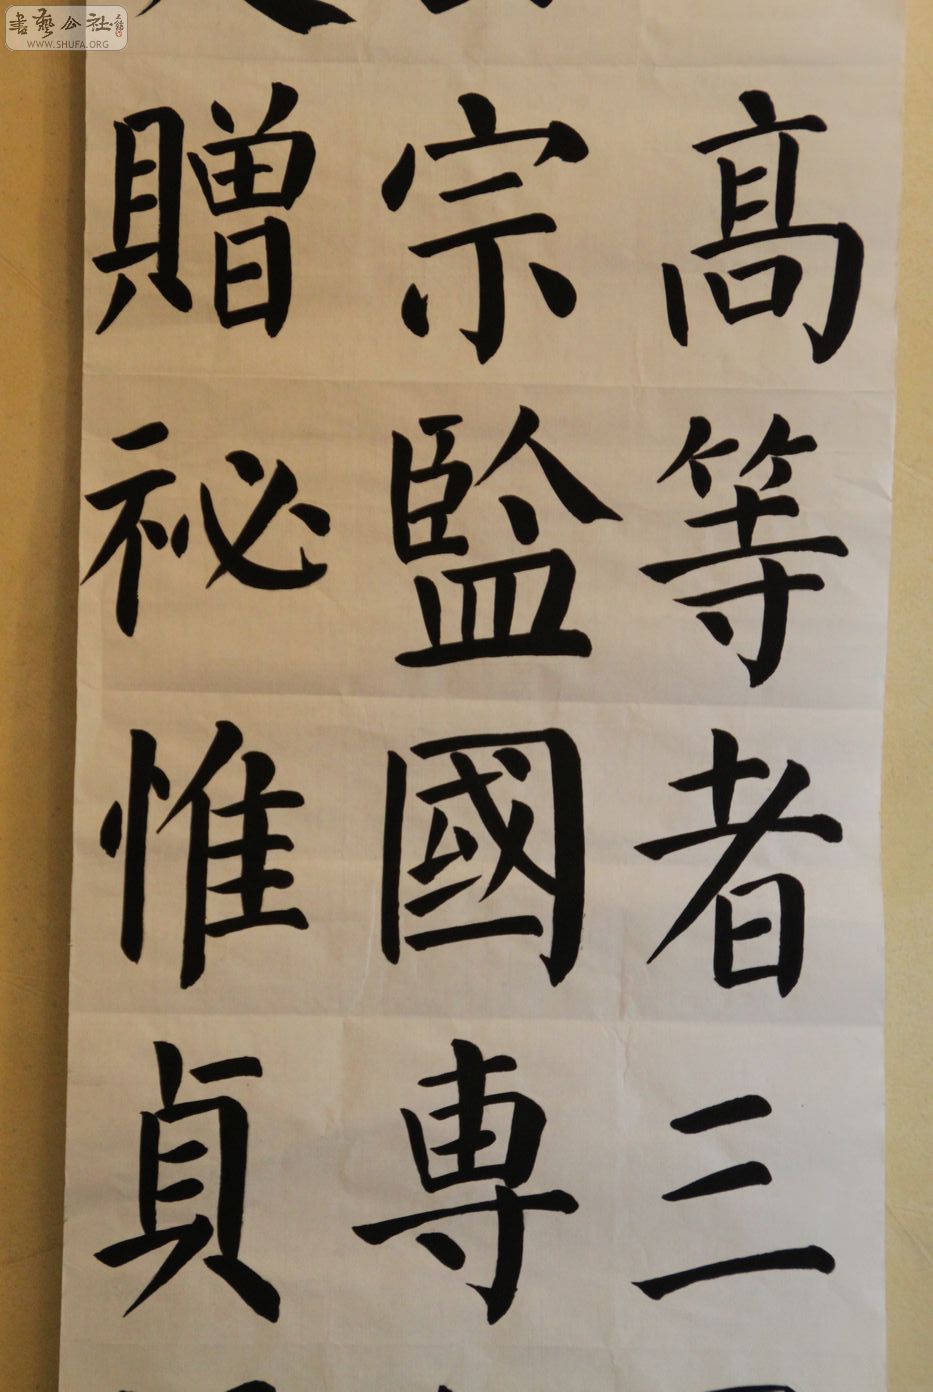 髙等者三
宗監國専
贈祕惟貞
書藝公社
WWW.SHUFA.ORG